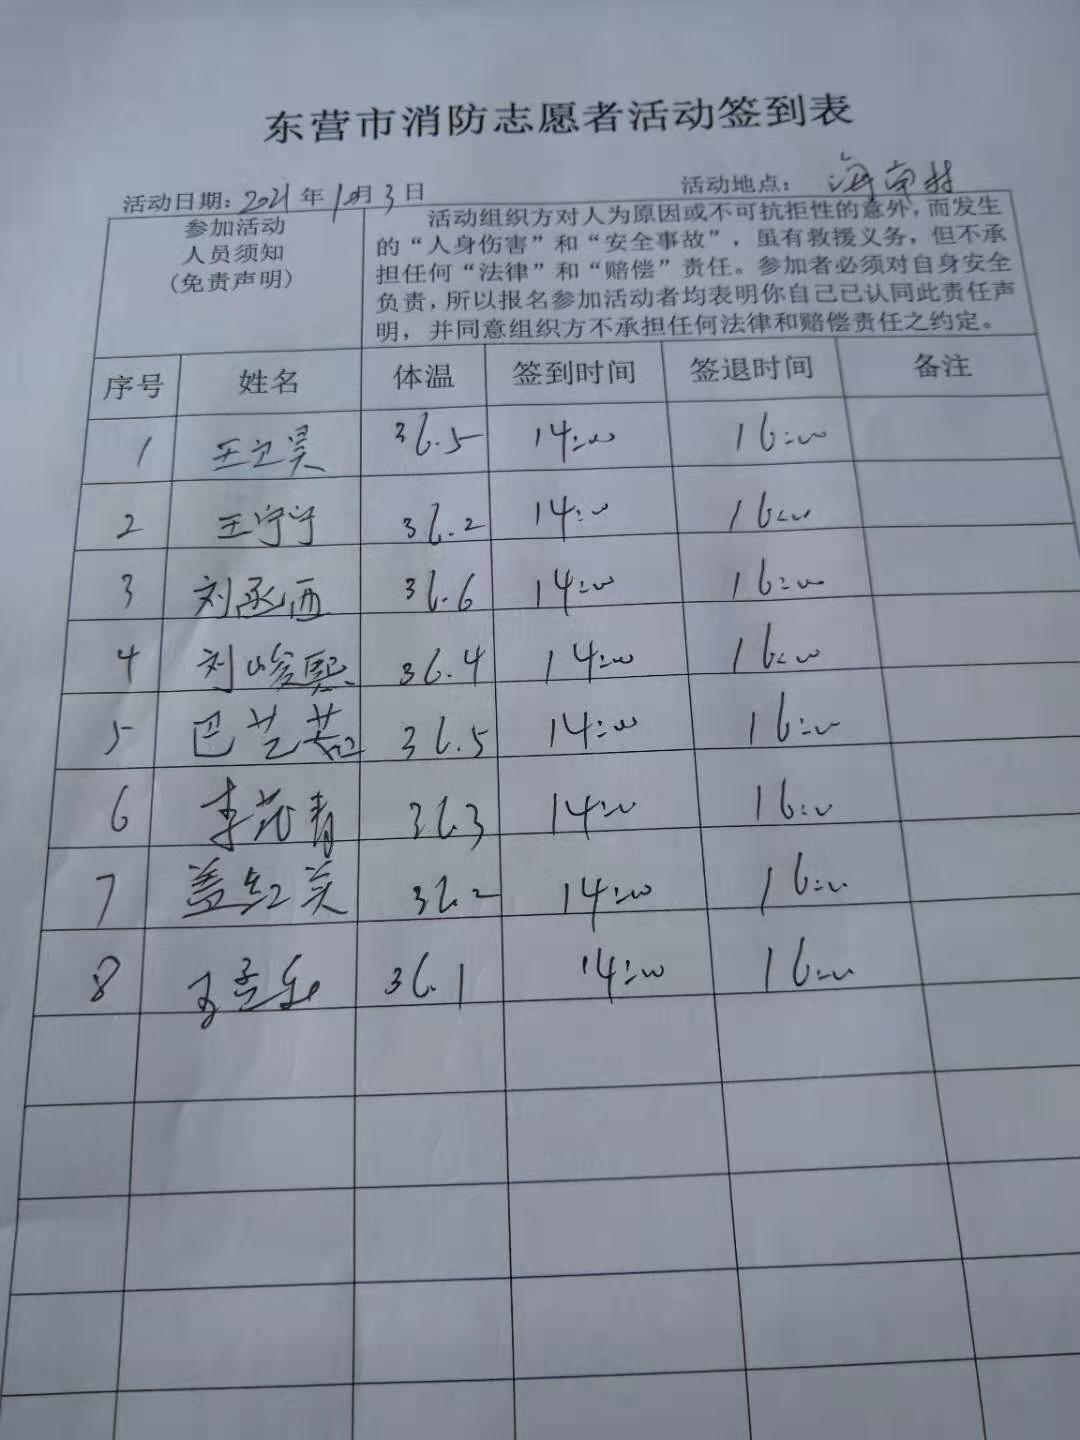 东营市消防志愿者活动签到表
活动日期：2021年10月3日 活动地点：海南村
参加活动
人员须知
(免责声明)
活动组织方对人为原因或不可抗拒性的意外，而发生
的“人身伤害”和“安全事故”，虽有救援义务，但不承
担任何“法律”和“赔偿”责任。参加者必须对自身安全
负责，所以报名参加活动者均表明你自己已认同此责任声
明，并同意组织方不承担任何法律和赔偿责任之约定。
序号 姓名 体温 签到时间 签退时间 备注
1 王之昊 36.5 14:00 16:00
2 王宁宁 36.2 14:00 16:00
3 刘丞西 36.6 14:00 16:00
4 刘峻熙 36.4 14:00 16:00
5 巴艺茗 36.5 14:00 16:00
6 李花青 36.3 14:00 16:00
7 盖红英 36.2 14:00 16:00
8 36.1 14:00 16:00